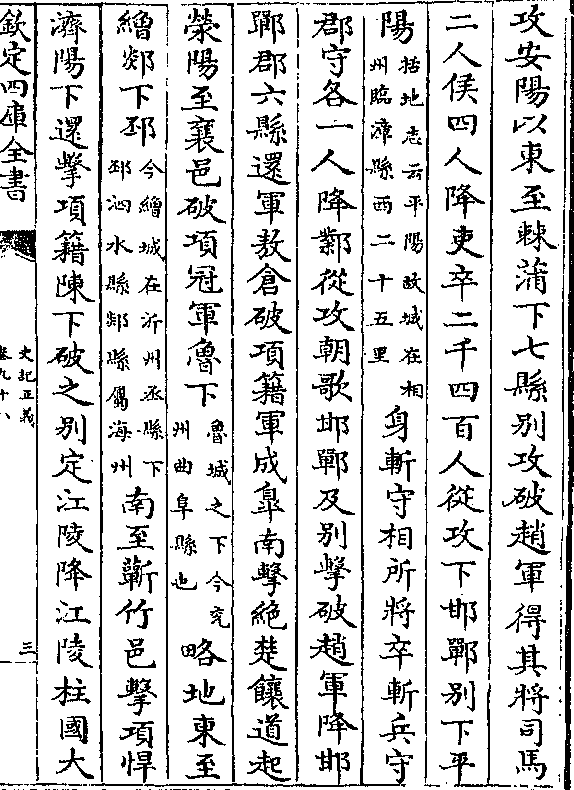 攻安陽以東至棘蒲下七縣别攻破趙軍得其將司馬
二人侯四人降吏卒二千四百人從攻下邯鄲别下平
陽括地志云平陽故城在相州臨漳縣西二十五里身斬守相所將卒斬兵守
郡守各一人降鄴從攻朝歌邯鄲及别擊破趙軍降邯
鄲郡六縣還軍敖倉破項籍軍成臯南擊絶楚饟道起
滎陽至襄邑破項冠軍魯下魯城之下今兖州曲阜縣也略地東至
繒郯下邳今繒城在沂州丞縣下邳泗水縣郯縣屬海州南至蘄竹邑擊項悍
濟陽下還擊項籍陳下破之别定江陵降江陵柱國大
欽定四庫全書
史記正義
卷九十八
三